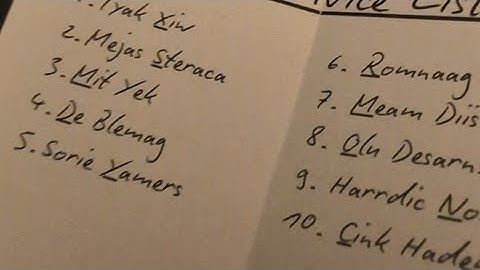 List
1. Tyak Xiw
2. Mejas Steraca
3. Mit Yek
4. De Blemag
5. Sorie Yamers
6. Romnaag
7. Meam Diis
8. Oln Desarn
9. Harrdic No
10. Cink Hade